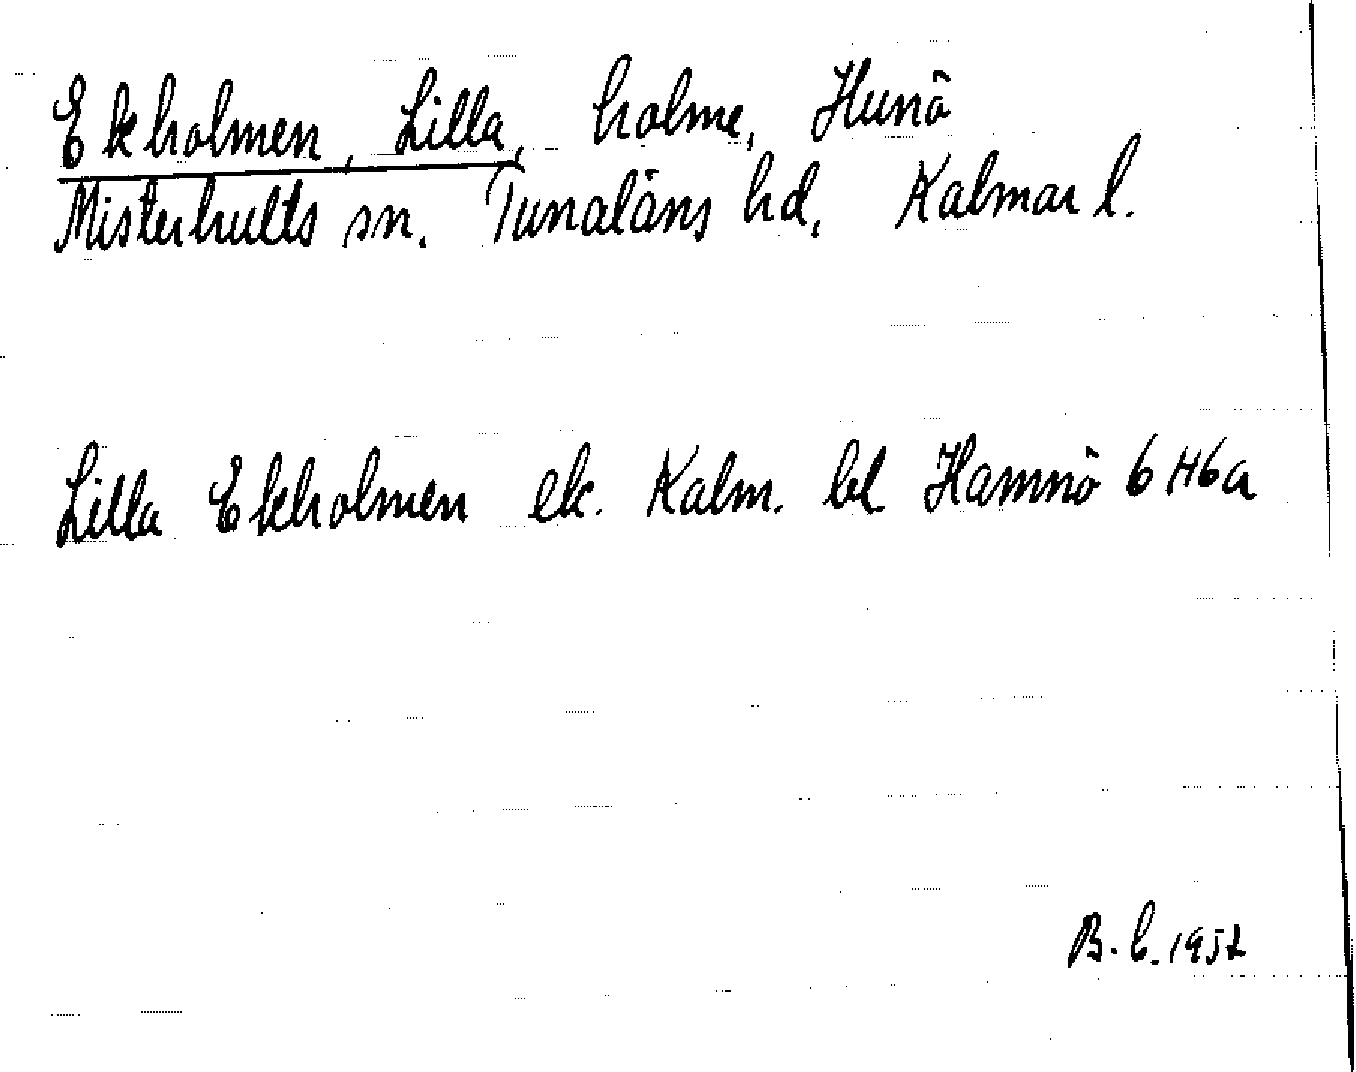 Ekholmen, Lilla, holme, Hunö
Misterhults sn. Tunaläns hd. Kalmar l.
Lilla Ekholmen ek. Kalm. bl Hamnö 6 H6a
B. L. 1952